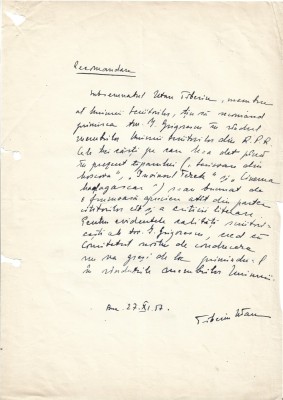 Recomandare
Subsemnatul Utan Tiberiu, membru
al Uniunii Scriitorilor, țin să recomand
primirea tov. I. Grigorescu în rândul
membrilor Uniunii Scriitorilor din R.P.R.
Cele trei cărți pe care le-a dat până
în prezent tiparului ("Scrisoare din
Moscova", "Învinsul Terek" și "Cinema
Madagascar") s-au bucurat de
o frumoasă apreciere atât din partea
cititorilor cât și a criticii literare.
Pentru evidentele calități scriitori-
cești ale tov. I. Grigorescu, cred că
Comitetul nostru de conducere
nu va greși de la primindu-l
în rândurile membrilor Uniunii.
Buc. 27.XI.57.
Tiberiu Utan